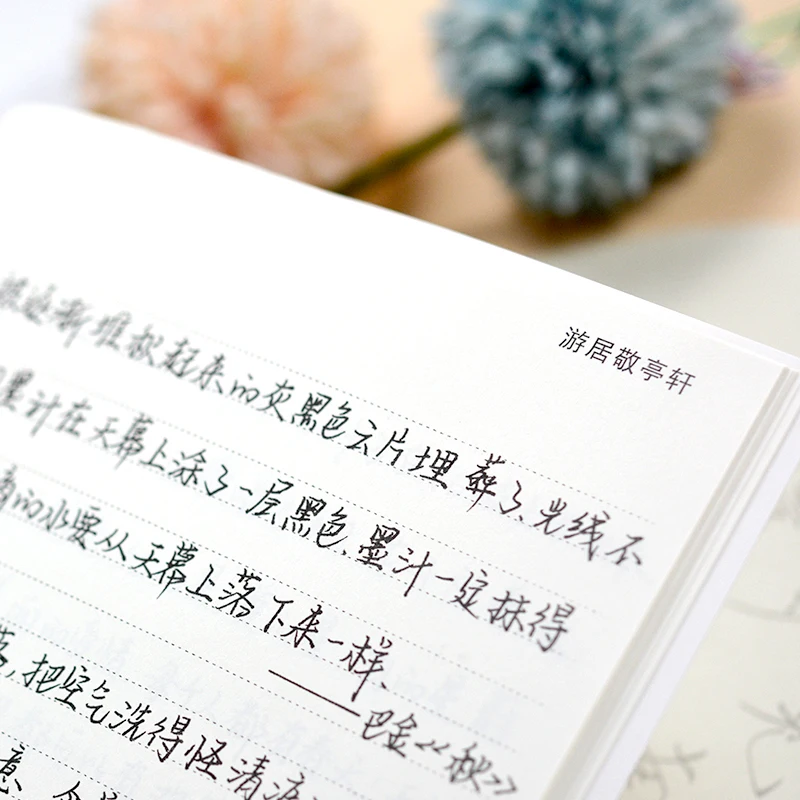 游居敬亭轩
逐渐堆积起来的灰黑色云片埋葬了、光线不
墨汁在天幕上涂了一层黑色、墨汁一定抹得
的水要从天幕上落下来一样、
——巴金《秋》
落，把空气洗得怪清凉
意